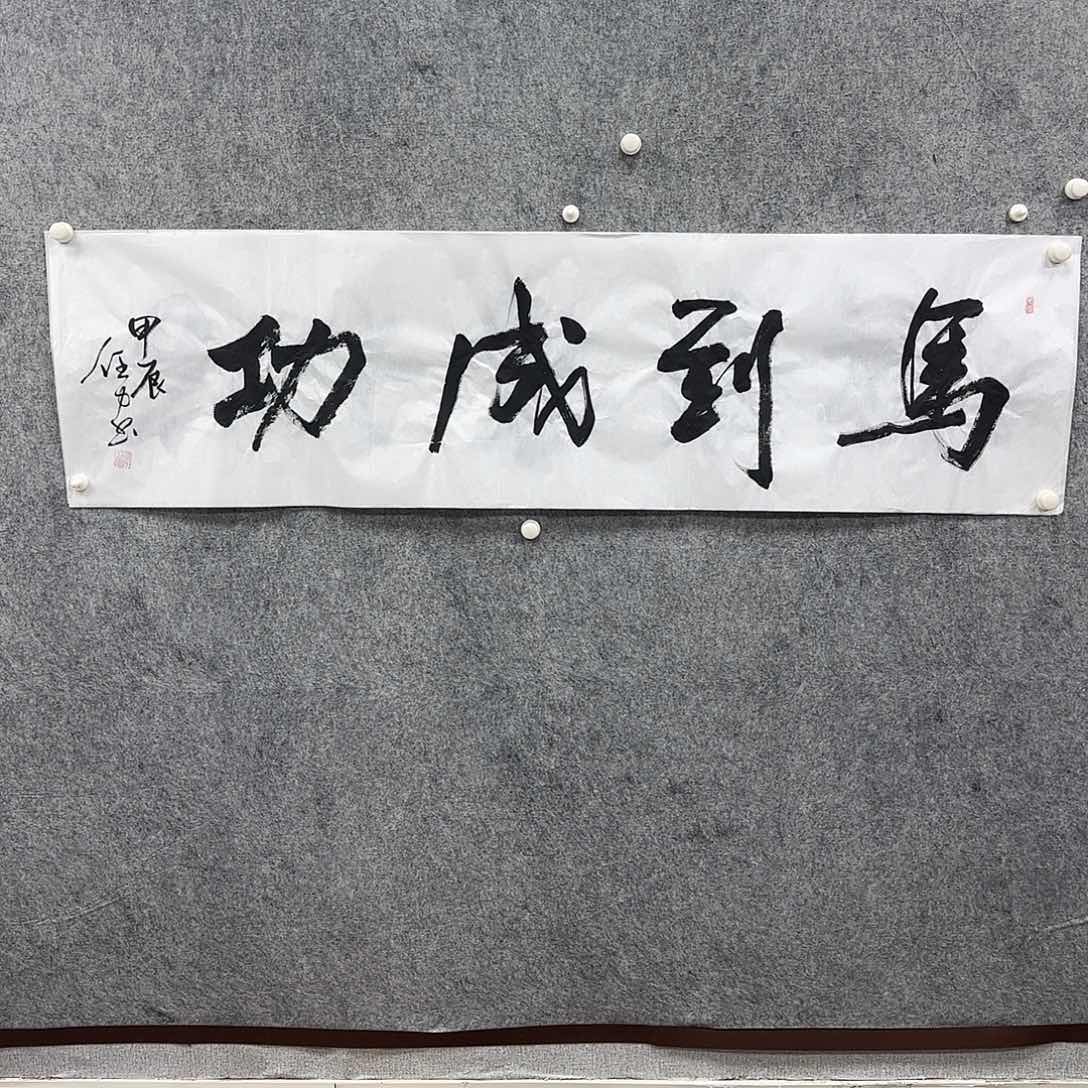 馬到成功
甲辰
任力书